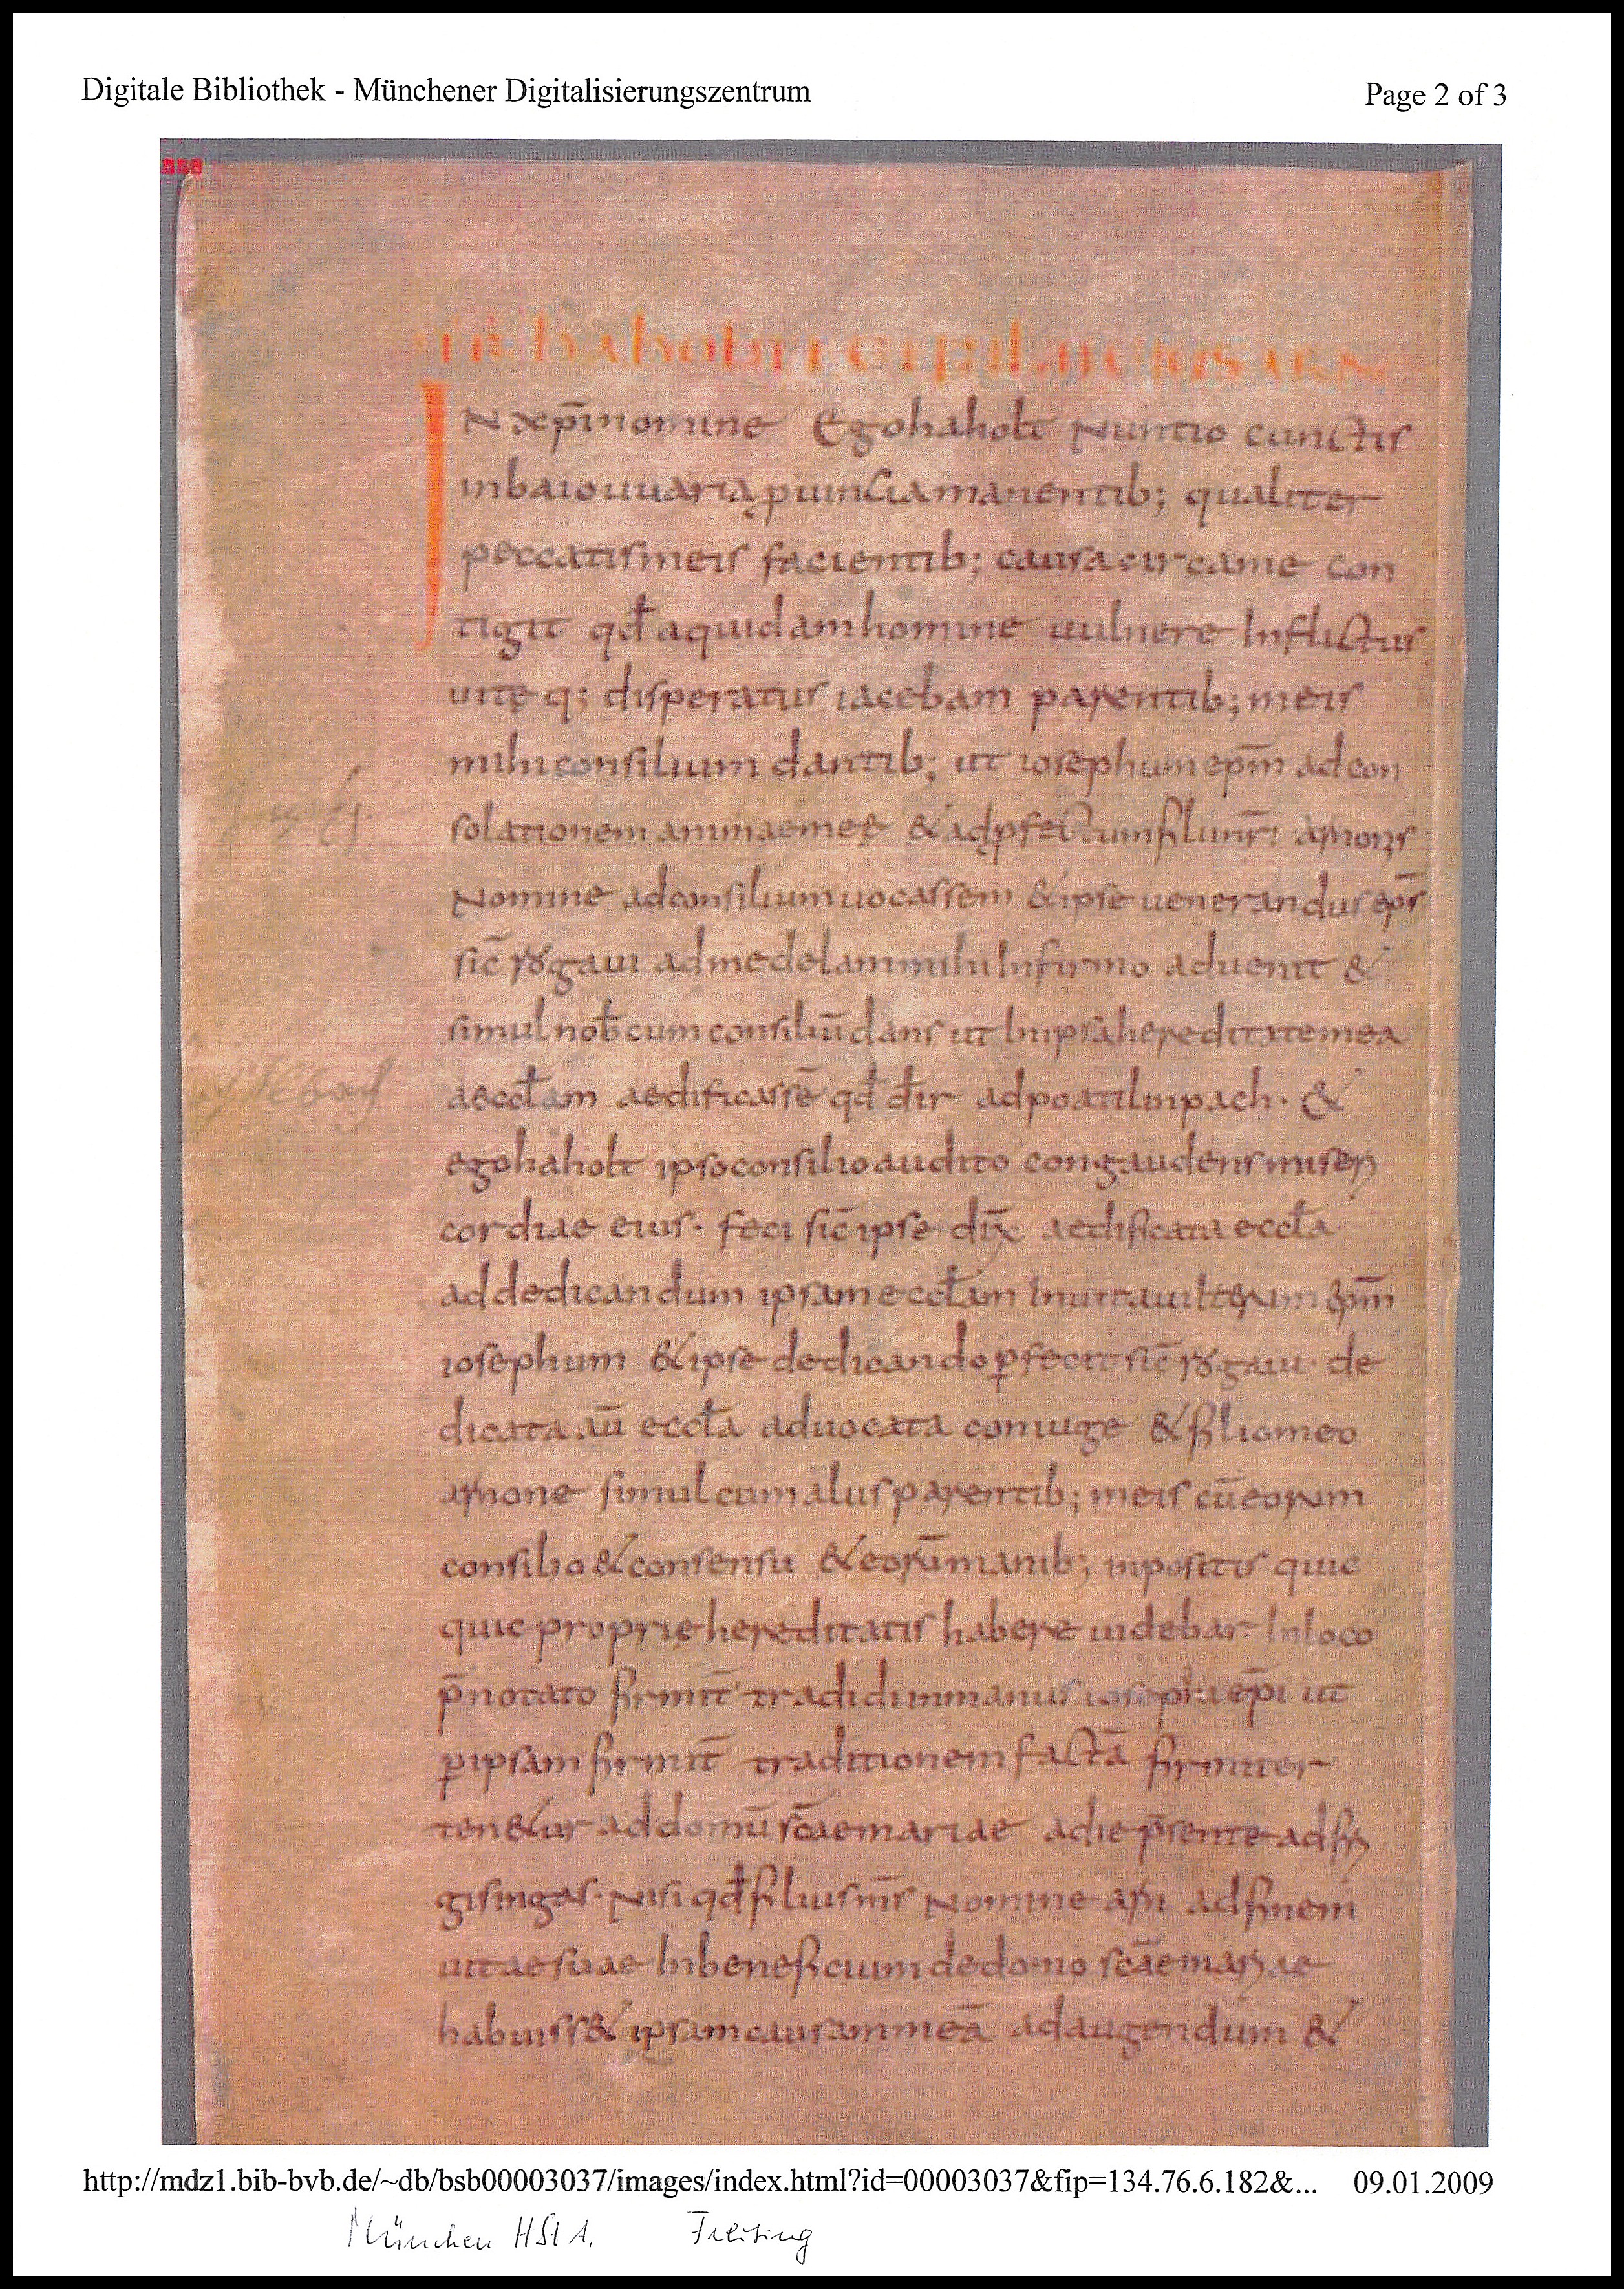 Digitale Bibliothek - Münchener Digitalisierungszentrum
Page 2 of 3
TR haholti et filii eius ARN
IN xp̄i nomine Ego haholt Nuntio cunctis
in baiouuaria ꝓuincia manentib; qualiter
peccatis meis facientib; causa circa me con
tigit qđ a quidam homine uulnere Inflictus
uitę q; disperatus iacebam parentib; meis
mihi consilium dantib; ut iosephum ep̄m ad con
solationem animae meę & ad ꝓfectum filii mī arnonis
Nomine ad consilium uocassem & ipse uenerandus ep̄s
sic̄ rogaui ad medelam mihi Infirmo aduenit &
simul nob̄ cum consiliū dans ut In ipsa hereditate mea
aeccłam aedificassē qđ đir ad poatilinpach. &
ego haholt ipso consilio audito congaudens miseri
cordiae eius. feci sic̄ ipse dix̄ aedificata eccła
ad dedicandum ipsam eccłam Inuitaui Iterum ep̄m
iosephum & ipse dedicando ꝑfecit sic̄ rogaui. de
dicata aū eccła aduocata coniuge & filio meo
arnone simul cum aliis parentib; meis cū eorum
consilio & consensu & eorū manib; inpositis quic
quic proprię hereditatis habere uidebar In loco
p̄notato firmit̄ tradidi in manus iosephi ep̄i ut
ꝑ ipsam firmit̄ traditionem factā firmiter
ten&ur ad domū sc̄ae mariae a die p̄sente ad fri
gisingas. Nisi qđ filius m̄s Nomine arn ad finem
uitae suae In beneficium de domo sc̄ae mariae
habuiss& ipsam causam meā ad augendum &
http://mdz1.bib-bvb.de/~db/bsb00003037/images/index.html?id=00003037&fip=134.76.6.182&...
09.01.2009
München HStA.
Freising